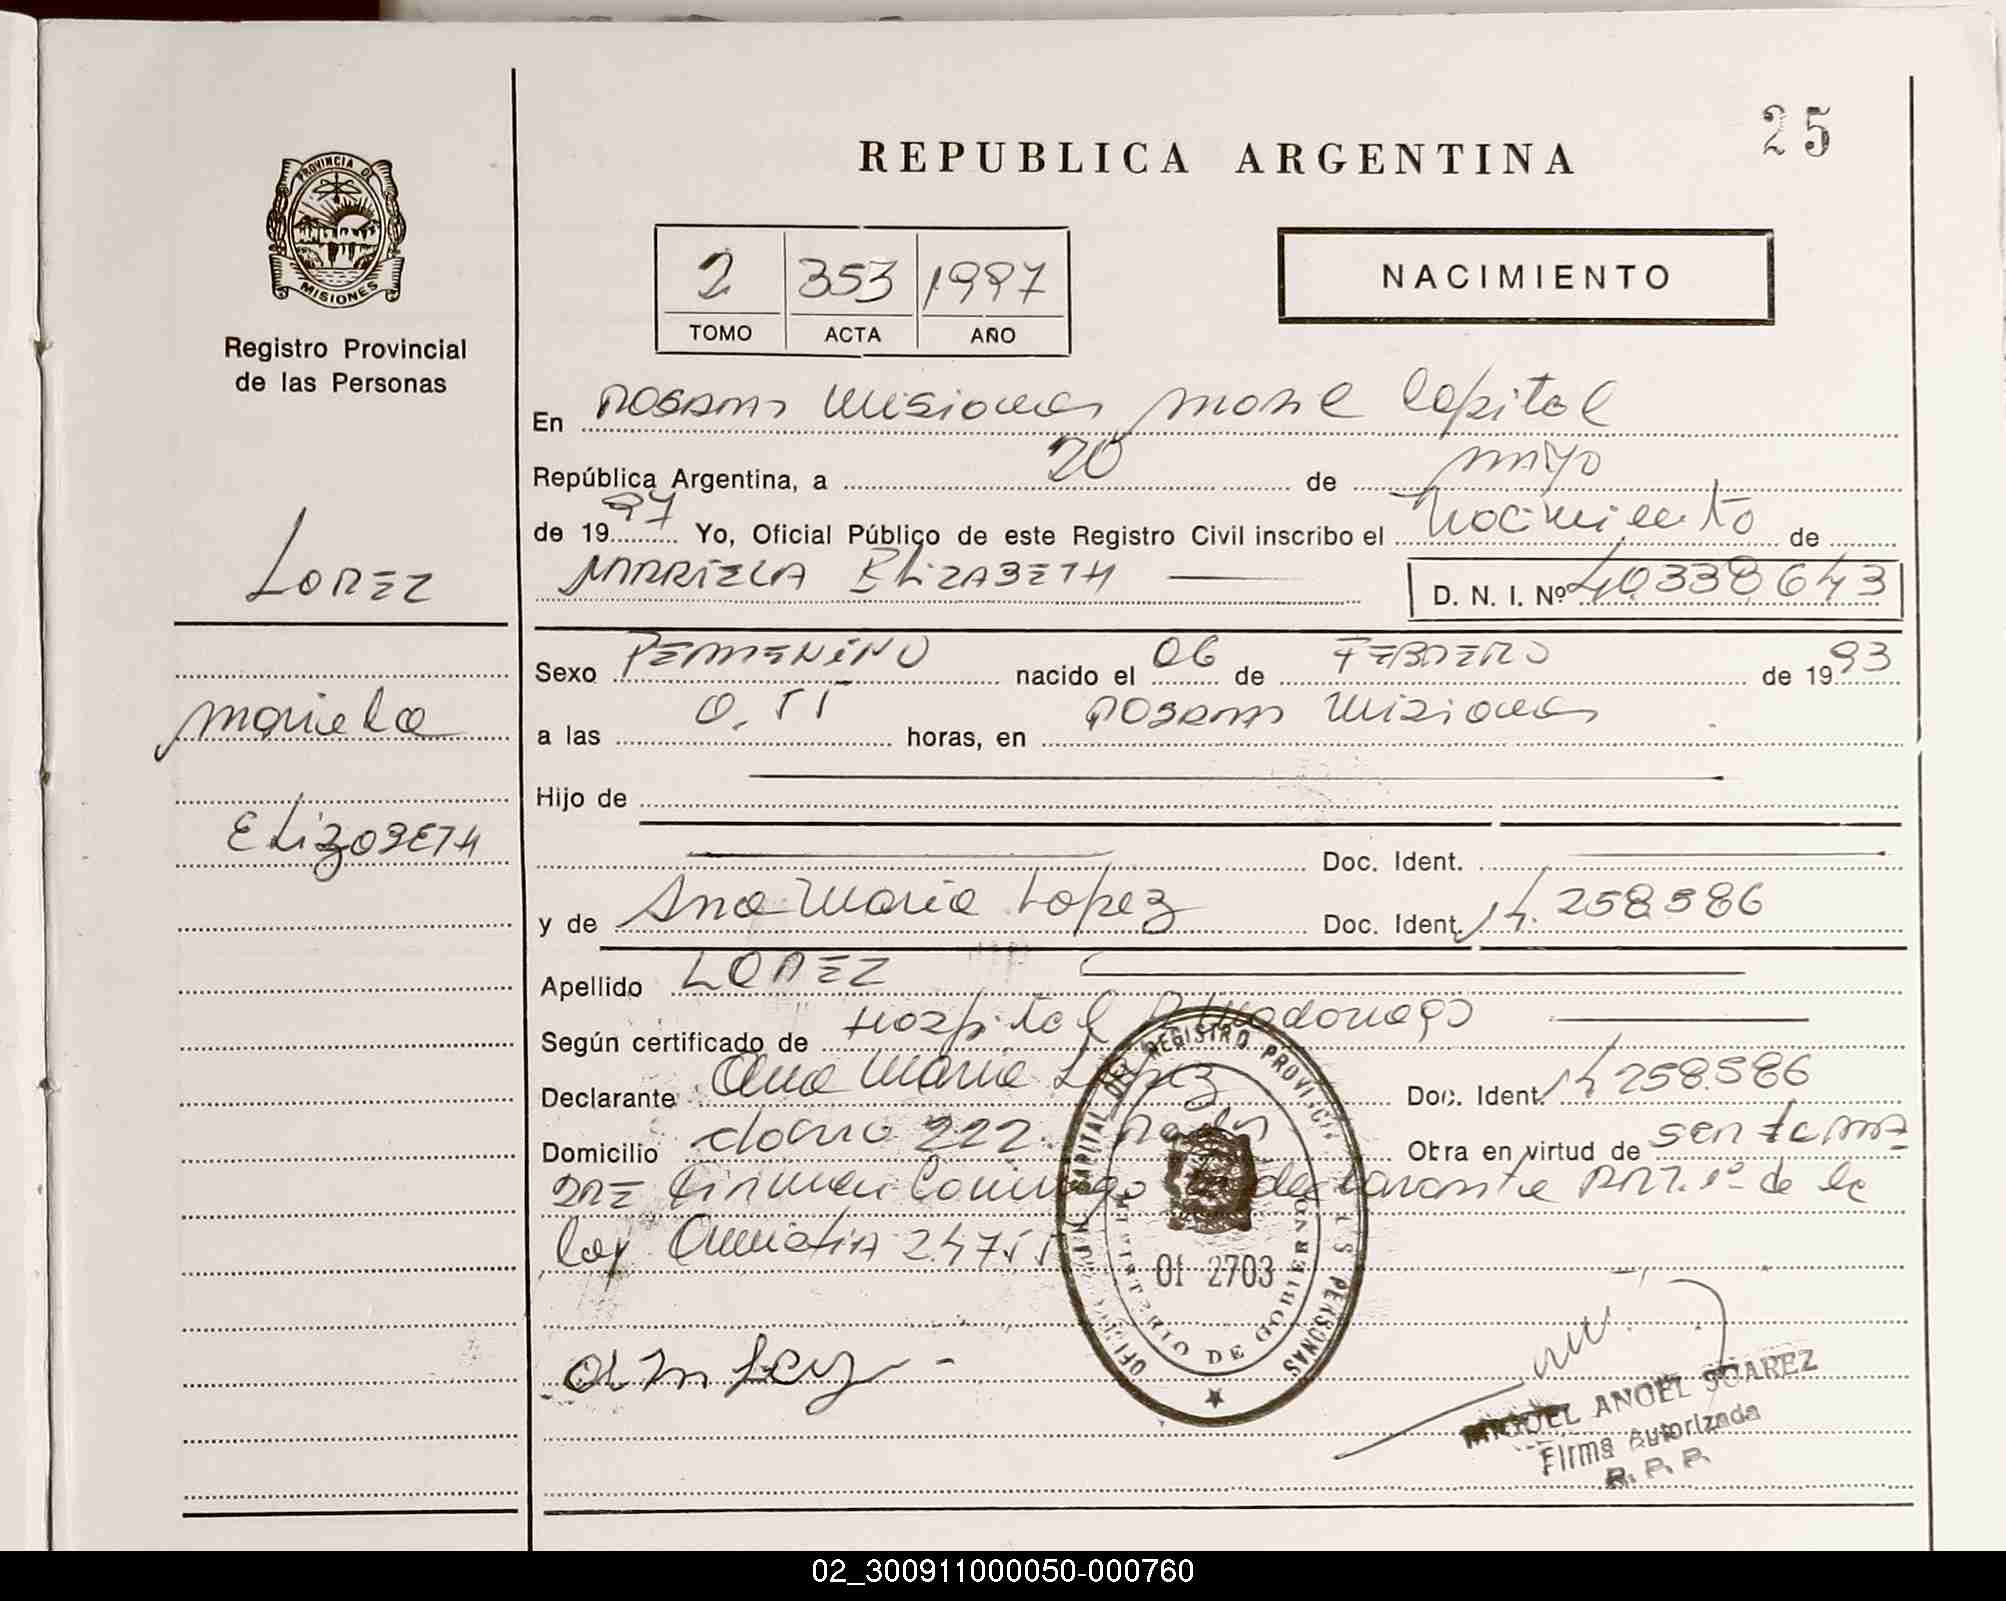 25
REPUBLICA ARGENTINA
PROVINCIA DE
MISIONES
Registro Provincial
de las Personas
2 353 1997
TOMO ACTA AÑO
NACIMIENTO
En Posadas Misiones Capital
República Argentina, a 20 de mayo
de 1997 Yo, Oficial Público de este Registro Civil inscribo el Nacimiento de
MARIELA ELIZABETH D. N. I. Nº 40.338.643
LOPEZ
Sexo FEMENINO nacido el 06 de FEBRERO de 1993
Mariela
a las 0,55 horas, en Posadas Misiones
Hijo de
ELIZABETH
Doc. Ident.
y de Ana Maria Lopez Doc. Ident. 14.258.586
Apellido LOPEZ
Según certificado de Hospital R Madariaga
Declarante Ana Maria Lopez Doc. Ident. 14.258.586
Domicilio 222. Otra en virtud de ser la ma
dre Firman Conmigo la declarante Art. 1º de la
ley Amnistia 24755
OFICINA CAPITAL DEL REGISTRO PROVINCIAL DE LAS PERSONAS
MINISTERIO DE GOBIERNO
01 2703
MIGUEL ANGEL SUAREZ
Firma Autorizada
R. P. P.
02_300911000050-000760